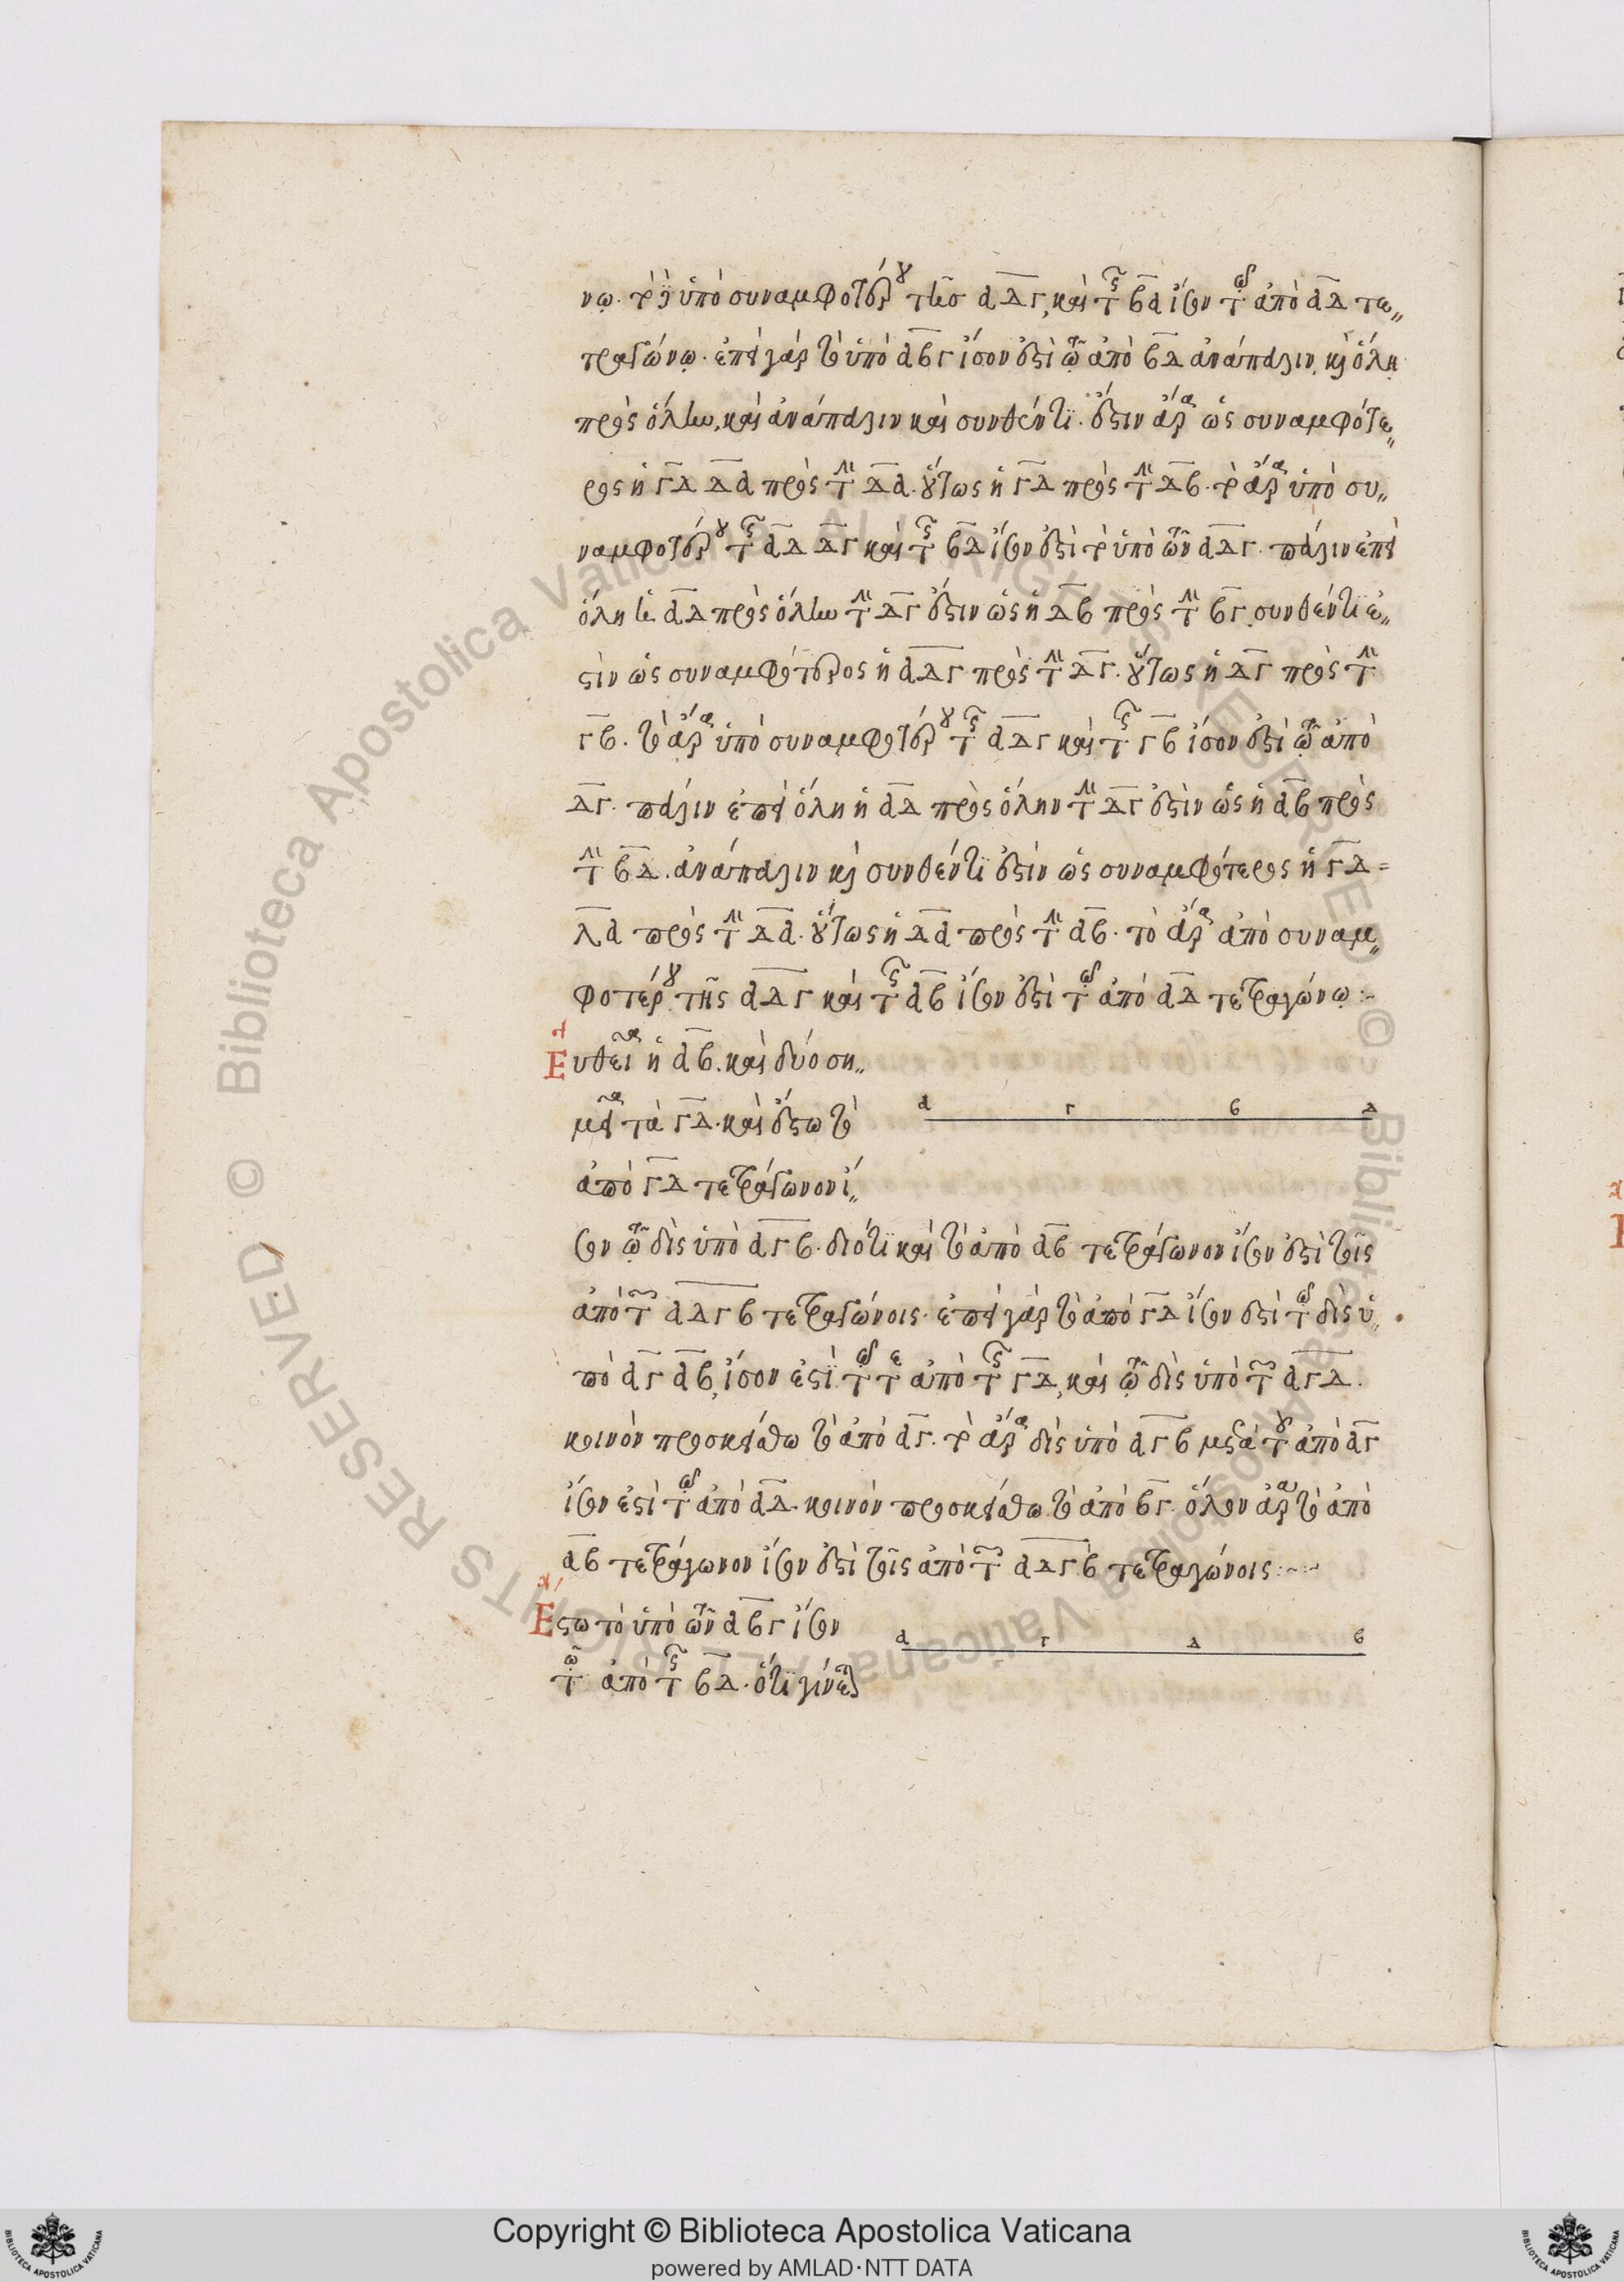 νῳ. τὸ δὲ ὑπὸ συναμφοτέρου τῆσ αδγ, καὶ τῆς βα ἴσον τῷ ἀπὸ αδ τε„
τραγώνῳ. ἐπεὶ γὰρ τὸ ὑπὸ αβγ ἴσον ἐστὶ τῷ ἀπὸ βδ ἀνάπαλιν, καὶ ὅλη
πρὸς ὅλην, καὶ ἀνάπαλιν καὶ συνθέντι. ἔστιν ἄρα ὡς συναμφότε„
ρος ἡ γδ δα πρὸς τὴν δα. οὕτως ἡ γδ πρὸς τὴν δβ. τὸ ἄρα ὑπὸ συ„
ναμφοτέρου τῆς αδ δγ καὶ τῆς βδ ἴσον ἐστὶ τὸ ὑπὸ τῶν αδγ. πάλιν ἐπεὶ
ὅλη ἡ αδ πρὸς ὅλην τὴν δγ ἔστιν ὡς ἡ δβ πρὸς τὴν βγ. συνθέντι ἐ„
στὶν ὡς συναμφότερος ἡ αδγ πρὸς τὴν δγ. οὕτως ἡ δγ πρὸς τὴν
γβ. τὸ ἄρα ὑπὸ συναμφοτέρου τῆς αδγ καὶ τῆς γβ ἴσον ἐστὶ τῷ ἀπὸ
δγ. πάλιν ἐπεὶ ὅλη ἡ αδ πρὸς ὅλην τὴν δγ ἐστὶν ὡς ἡ αβ πρὸς
τὴν βδ. ἀνάπαλιν καὶ συνθέντι ἐστὶν ὡς συναμφότερος ἡ γδ=
λα πρὸς τὴν δα. οὕτως ἡ δα πρὸς τὴν αβ. τὸ ἄρα ἀπὸ συναμ„
φοτέρου τῆς αδγ καὶ τῆς αβ ἴσον ἐστὶ τῷ ἀπὸ αδ τετραγώνῳ :~
Ευθεῖα ἡ αβ. καὶ δύο ση„
μεῖα τὰ γδ. καὶ ἔστω τὸ
α γ β δ
ἀπὸ γδ τετράγωνον ἴ„
σον τῷ δὶς ὑπὸ αγβ. διότι καὶ τὸ ἀπὸ αβ τετράγωνον ἴσον ἐστὶ τοῖς
ἀπὸ τῶν αδγβ τετραγώνοις. ἐπεὶ γὰρ τὸ ἀπὸ γδ ἴσον ἐστὶ τῷ δὶς ὑ„
πὸ αγ αβ, ἴσον ἐστὶ τῷ τε ἀπὸ τῆς γδ, καὶ τῷ δὶς ὑπὸ τῶν αγδ.
κοινὸν προσκείσθω τὸ ἀπὸ αγ. τὸ ἄρα δὶς ὑπὸ αγβ μετὰ τοῦ ἀπὸ αγ
ἴσον ἐστὶ τῷ ἀπὸ αδ. κοινὸν προσκείσθω τὸ ἀπὸ βγ. ὅλον ἄρα τὸ ἀπὸ
αβ τετράγωνον ἴσον ἐστὶ τοῖς ἀπὸ τῶν αδγβ τετραγώνοις :~
Εστω τὸ ὑπὸ τῶν αβγ ἴσον
α γ δ β
τῷ ἀπὸ τῆς βδ. ὅτι γίνεται
Copyright © Biblioteca Apostolica Vaticana
powered by AMLAD·NTT DATA